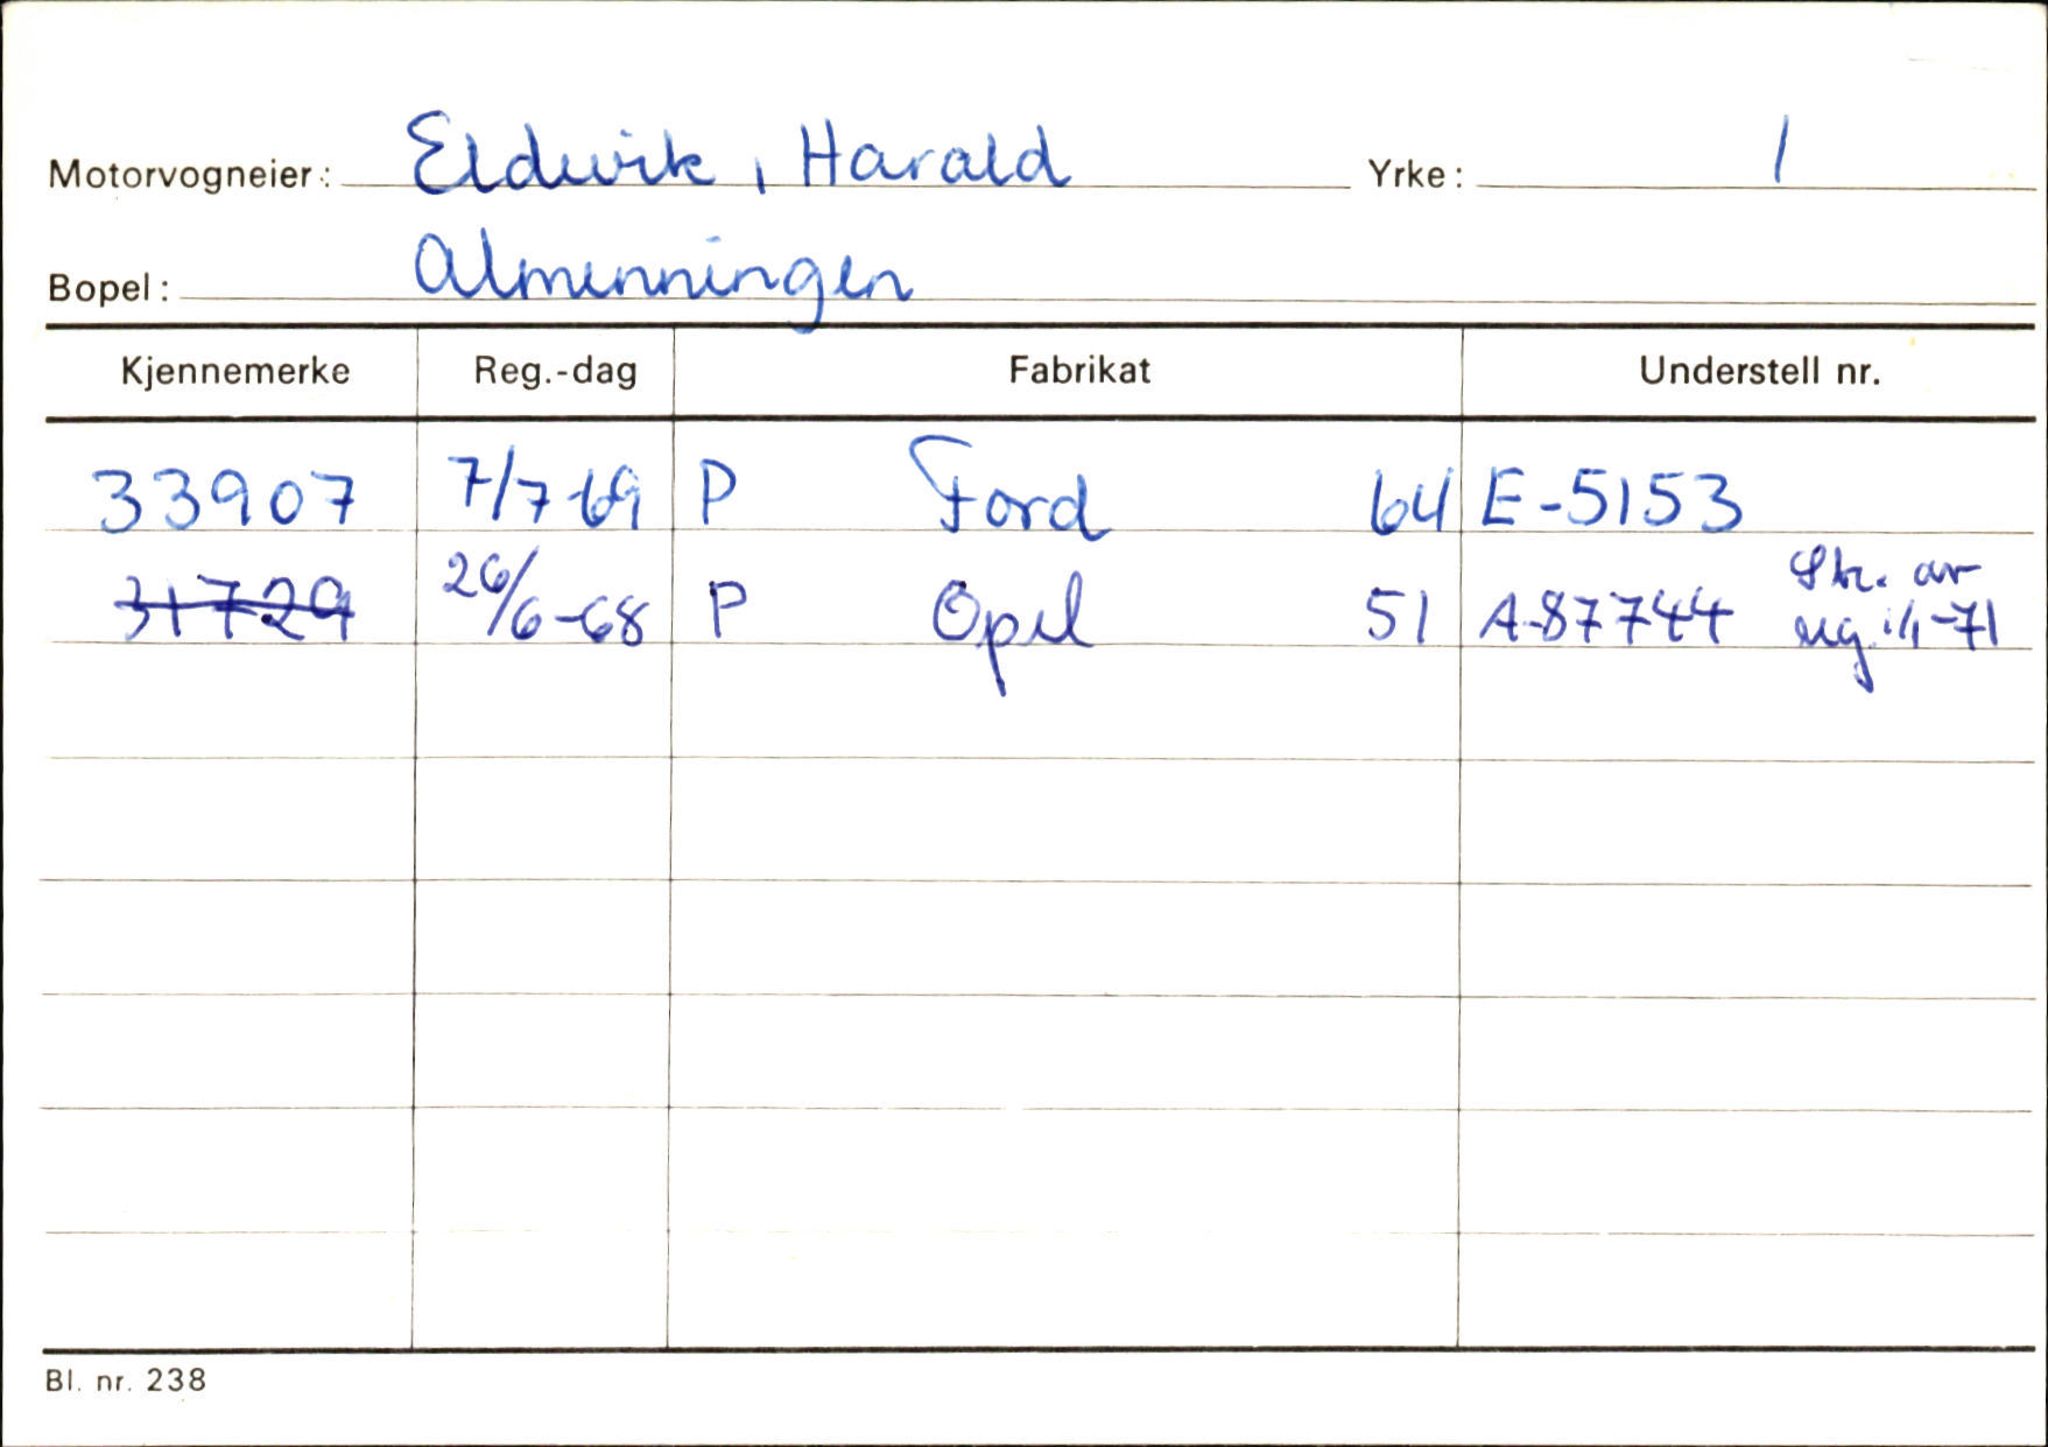 Motorvogneier: Eldevik, Harald Yrke: 1
Bopel: Almenningen
Kjennemerke Reg.-dag Fabrikat Understell nr.
33907 7/7-69 P Ford 64 E-5153
31729 26/6-68 P Opel 51 A-87744 Str. av
reg. 1/1-71
Bl. nr. 238